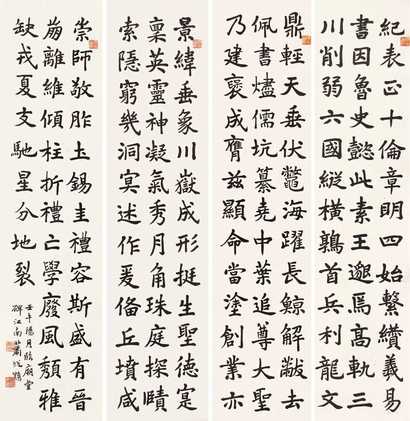 紀表正十倫章明四始繫纘羲易
書因魯史懿此素王邈焉高軌三
川削弱六國縱橫鶉首兵利龍文
鼎輕天垂伏鼈海躍長鯨解黻去
佩書燼儒坑纂堯中葉追尊大聖
乃建褒成膺茲顯命當塗創業亦
景緯垂象川嶽成形挺生聖德寔
稟英靈神凝氣秀月角珠庭探賾
索隱窮幾洞冥述作爰備丘墳咸
崇師敬胙土錫圭禮容斯盛有晉
崩離維傾柱折禮亡學廢風頹雅
缺戎夏交馳星分地裂
壬午陽月臨廟堂
碑江南蕭